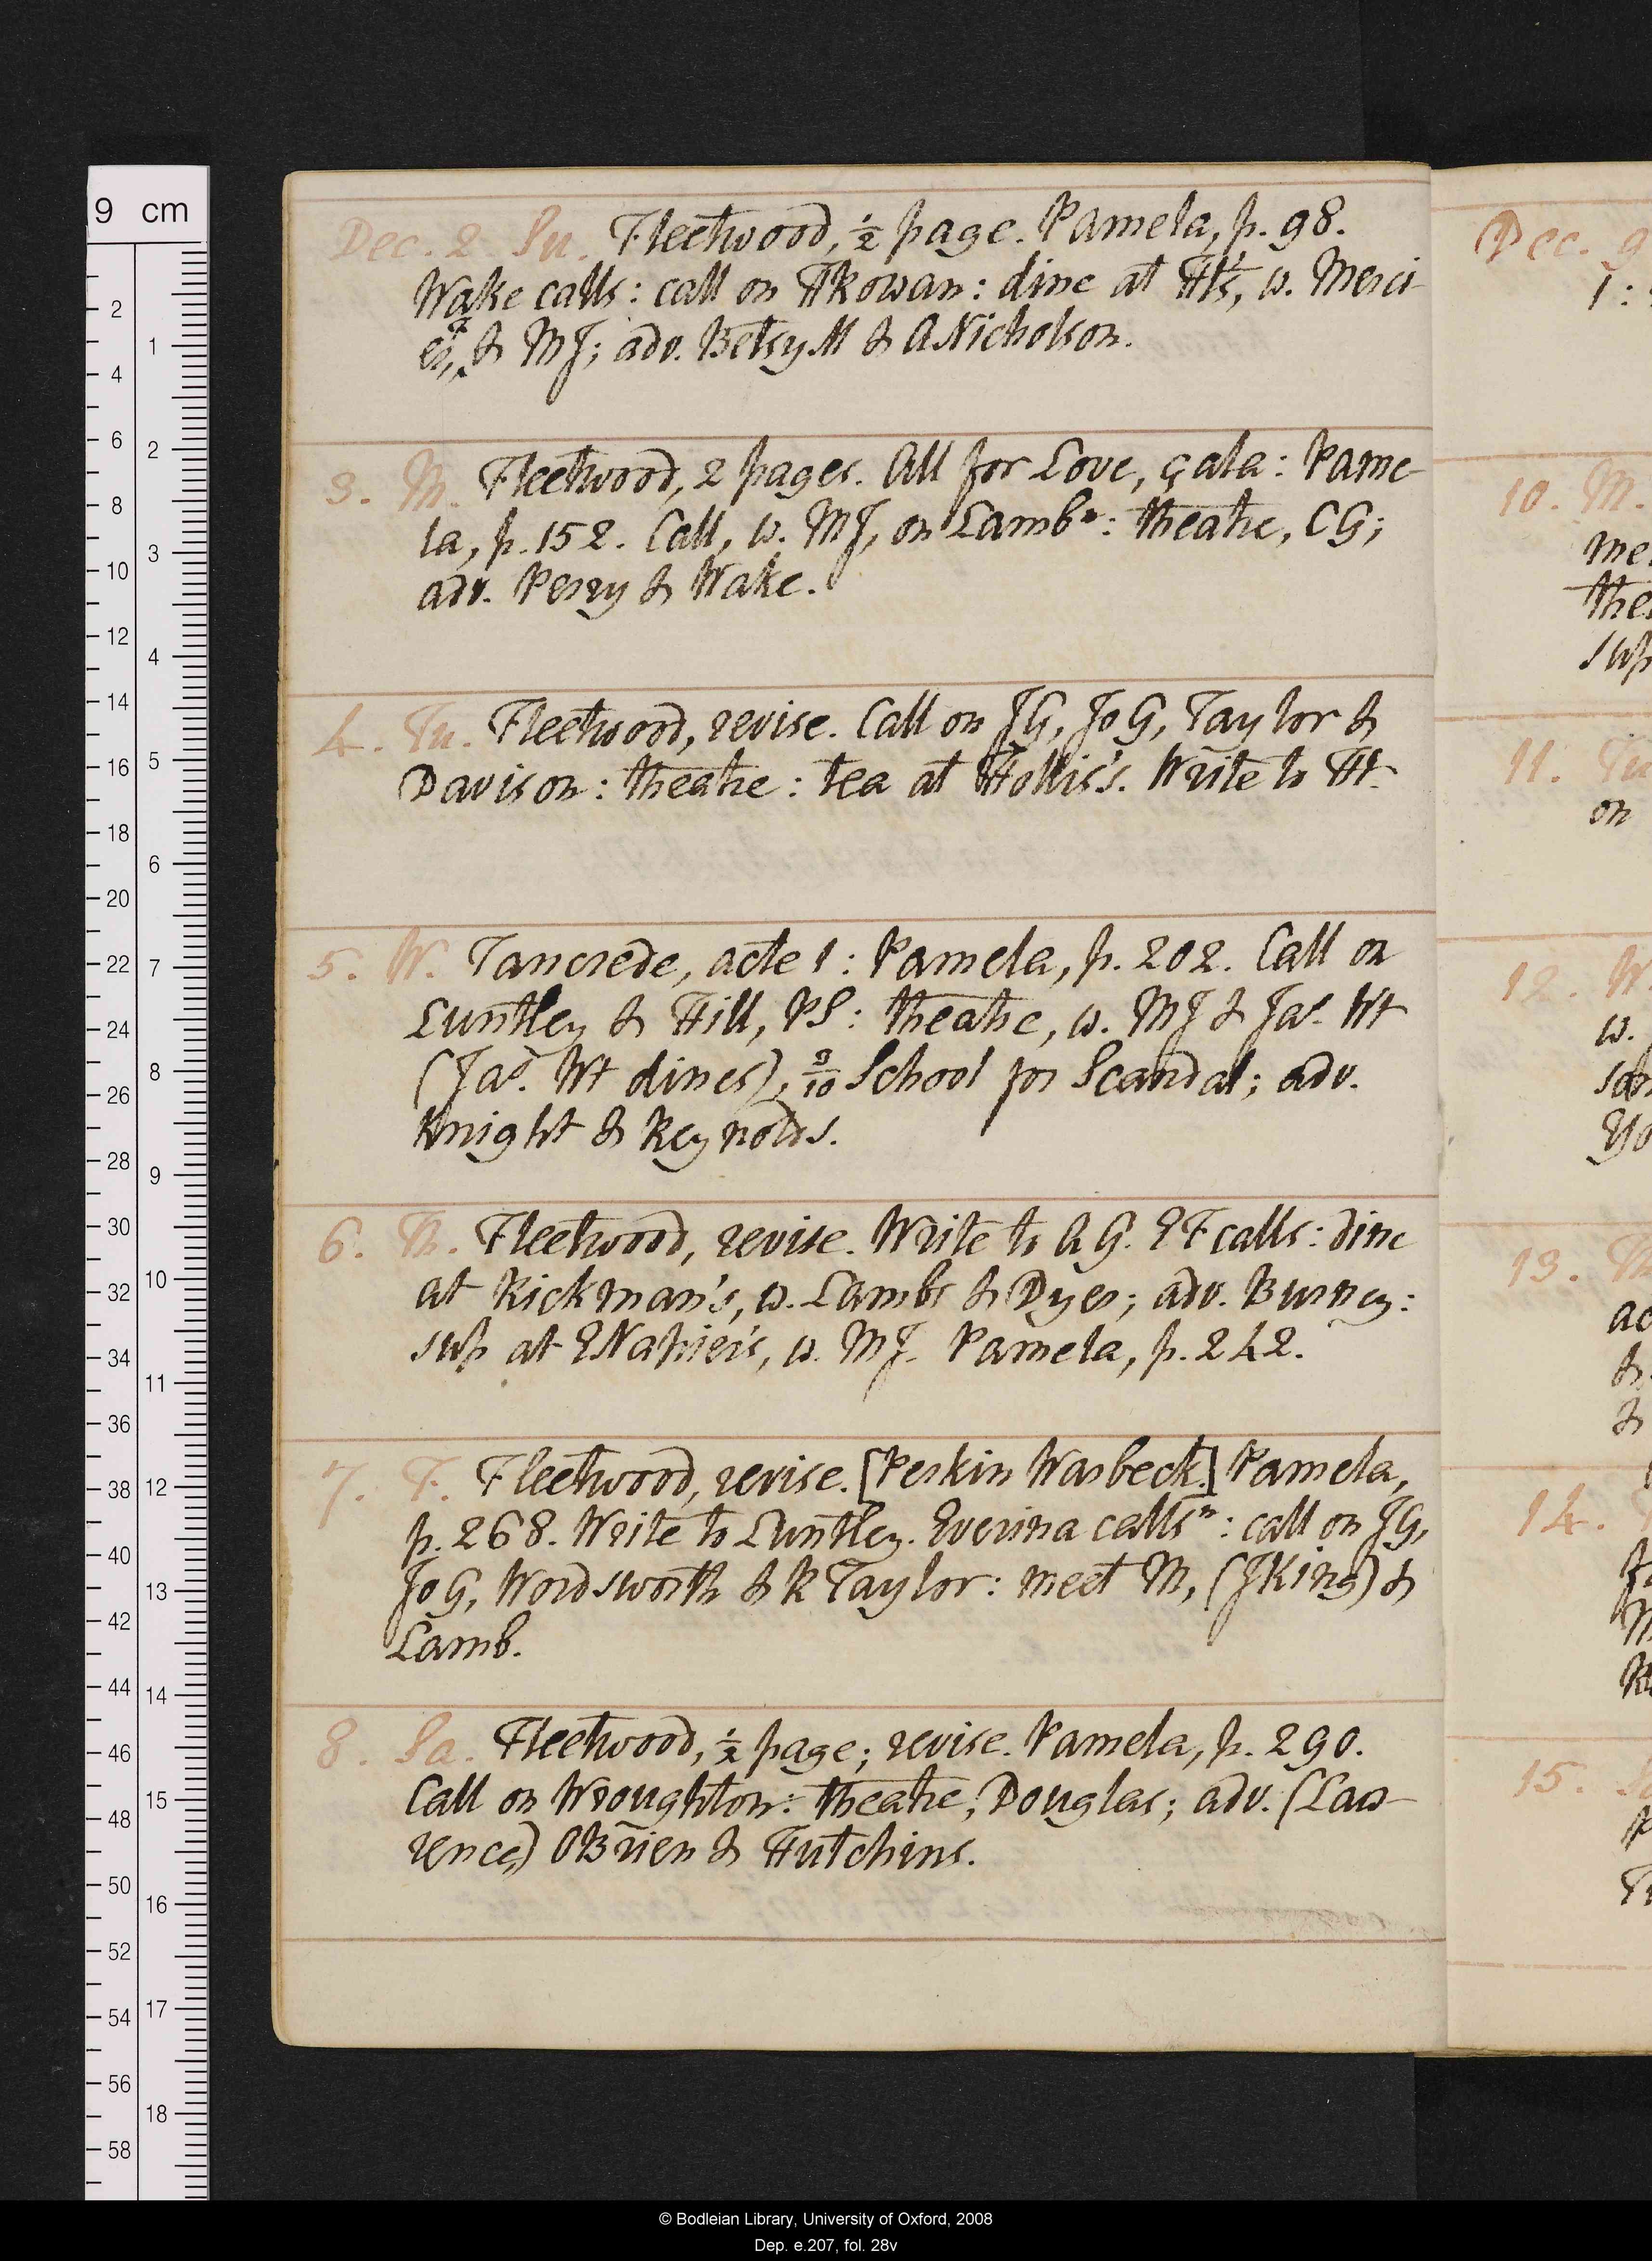 Dec. 2. Su. Fleetwood, ½ page. Pamela, p. 98.
Wake calls: call on HRowan: dine at Ht's, w. Merci-
er, & MJ; adv. Betsy M & A Nicholson.
3. M. Fleetwood, 2 pages. All for Love, çala: Pame-
la, p. 152. Call, w. MJ, on Lambⁿ: theatre, CG;
adv. Perry & Wake.
4. Tu. Fleetwood, revise. Call on JG, JoG, Taylor &
Davison: theatre: tea at Hollis's. Write to Ht.
5. W. Tancrede, acte 1: Pamela, p. 202. Call on
Luntley & Hill, PS: theatre, w. MJ & Jas. Wt
(Jas. Wt dines), 9/10 School for Scandal; adv.
Knight & Reynolds.
6. Th. Fleetwood, revise. Write to AG. EF calls: dine
at Rickman's, w. Lambs & Dyer; adv. Burney:
sup at ENapier's, w. MJ. Pamela, p. 242.
7. F. Fleetwood, revise. [Perkin Warbeck.] Pamela,
p. 268. Write to Luntley. Everina callsⁿ: call on JG,
JoG, Wordsworth & R Taylor: meet M, (JKing) &
Lamb.
8. Sa. Fleetwood, ½ page; revise. Pamela, p. 290.
Call on Wroughton: theatre, Douglas; adv. (Law-
rence,) OBrien & Hutchins.
Dec. 9
1:
10. M.
me
the
sup
11. Tu
on
12. W
w.
13. Th
ac
&
&
14.
15.
9 cm
2
4
6
8
10
12
14
16
18
20
22
24
26
28
30
32
34
36
38
40
42
44
46
48
50
52
54
56
58
1
2
3
4
5
6
7
8
9
10
11
12
13
14
15
16
17
18
© Bodleian Library, University of Oxford, 2008
Dep. e.207, fol. 28v